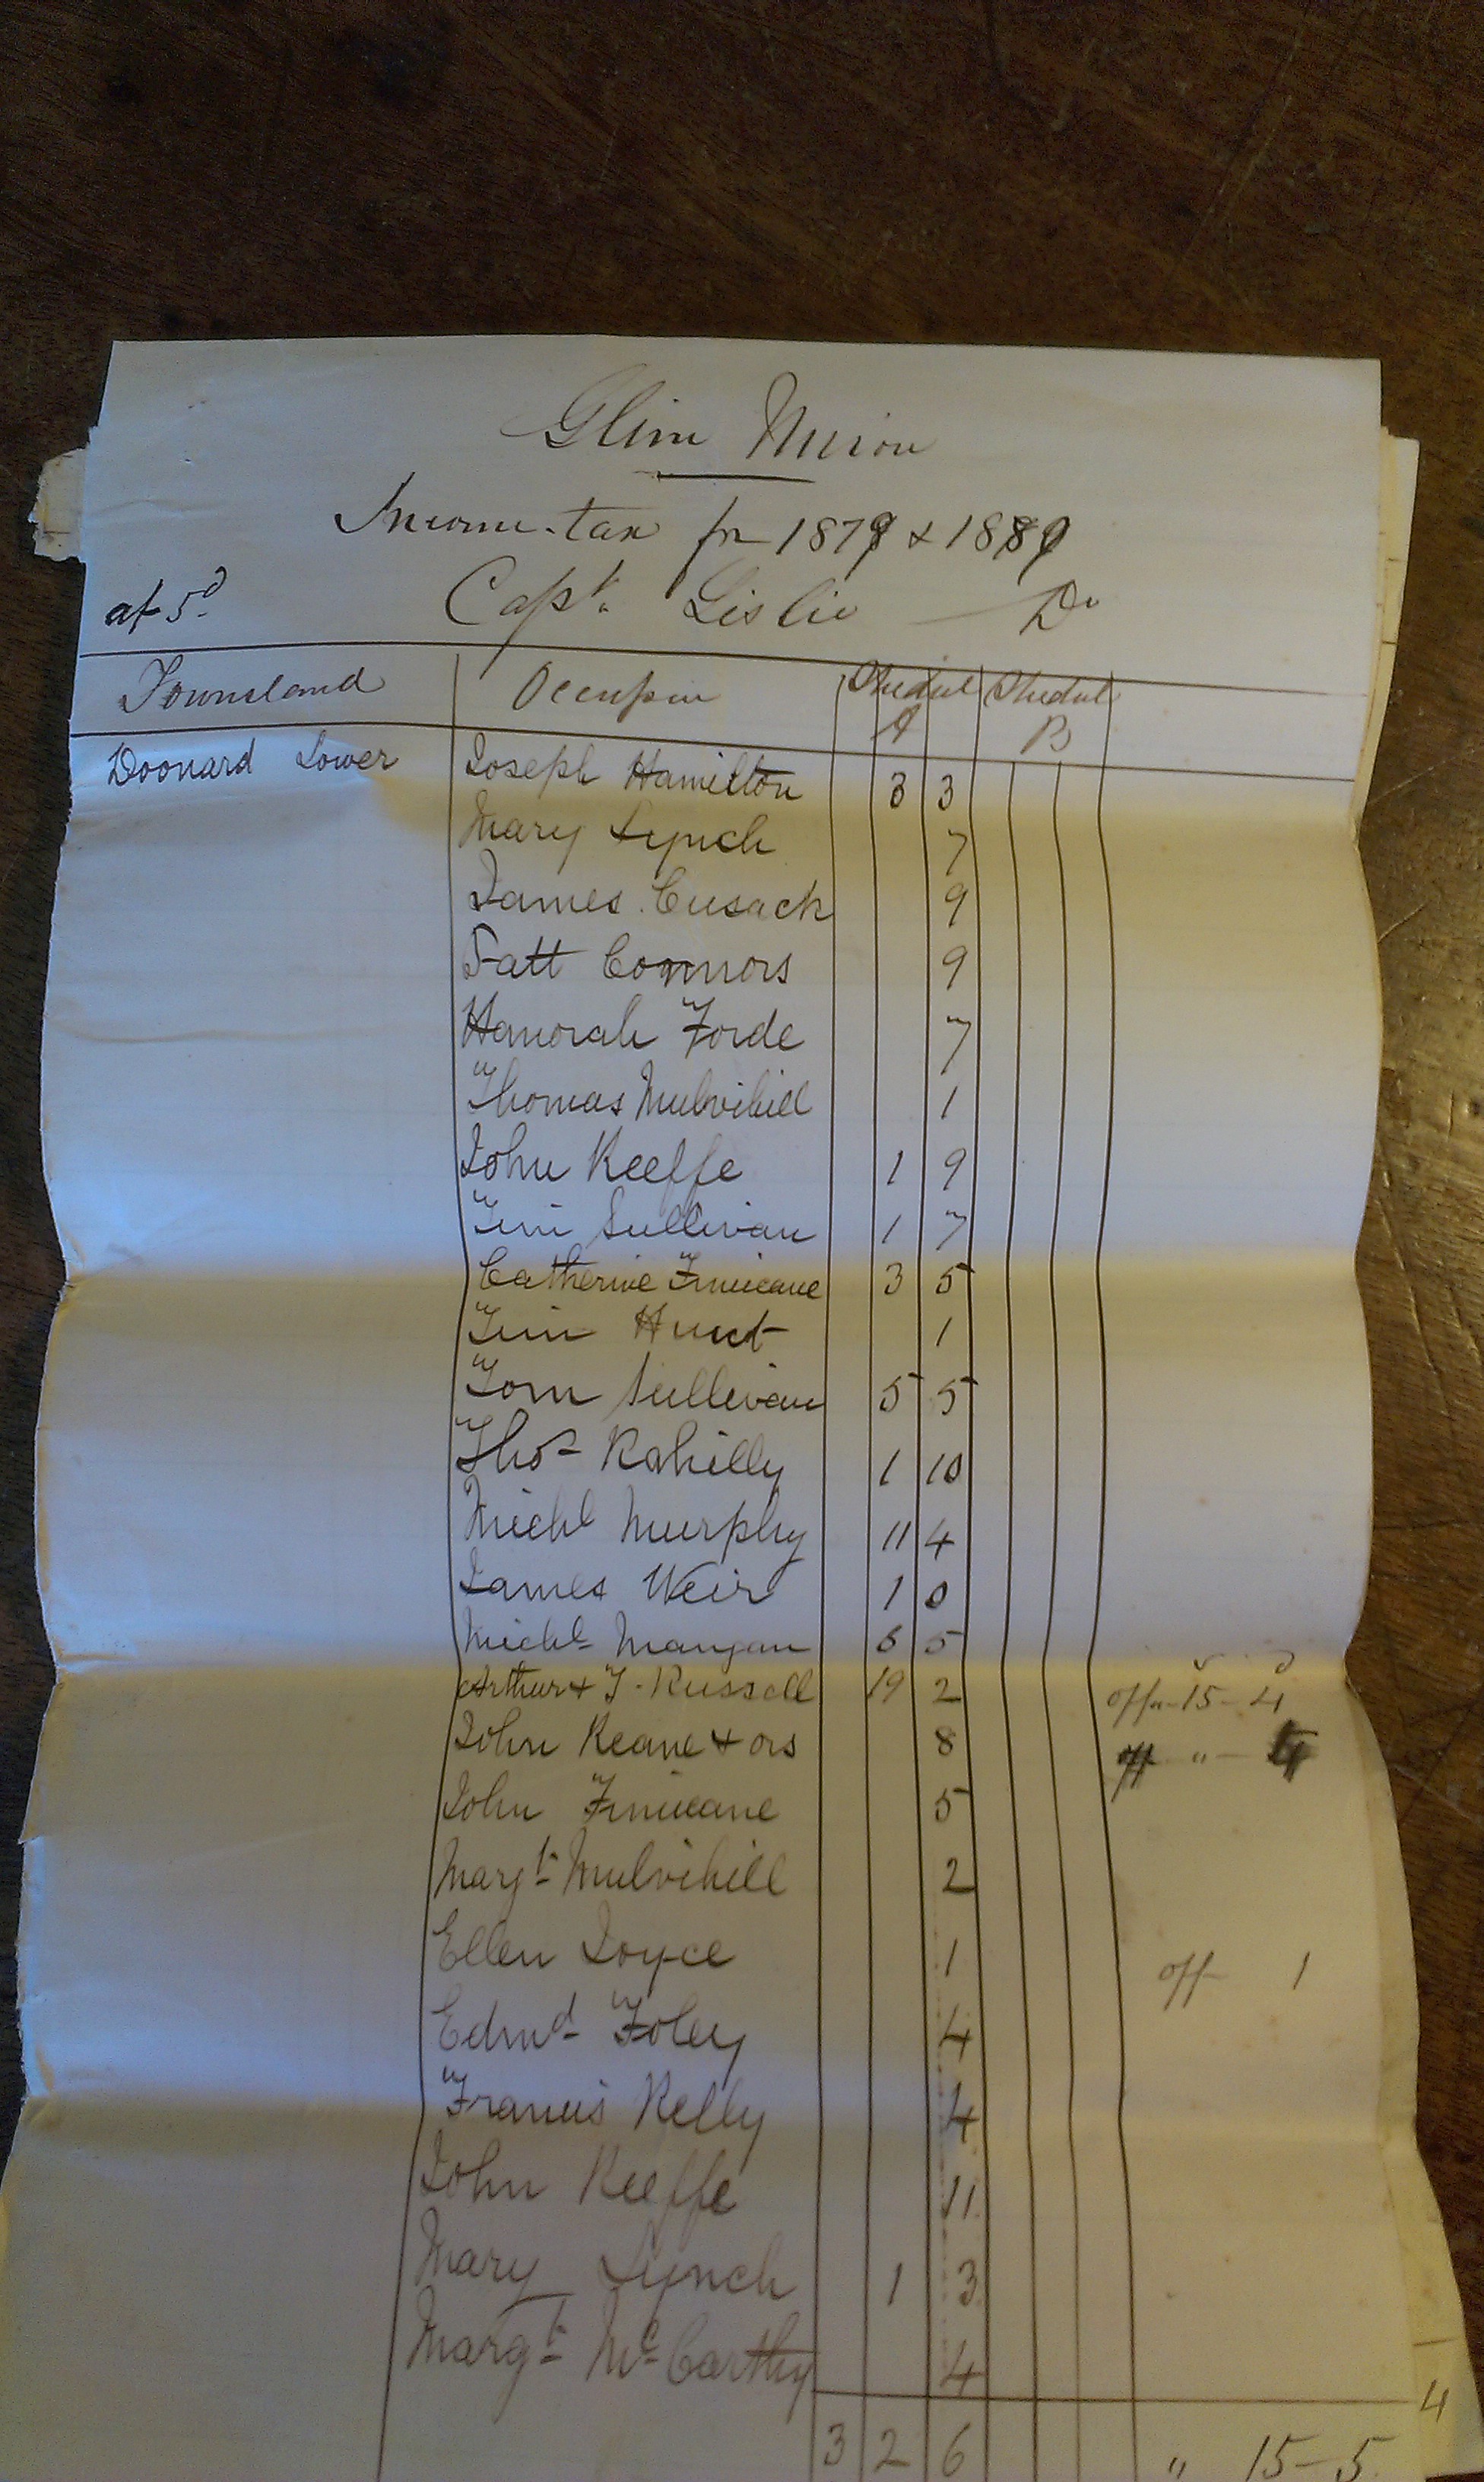 Glinn Union
Income-tax for 1879 & 1880
at 5d Capt. Leslie Dr
Townsland Occupier Shedul A Shedul B
Doonard Lower Joseph Hamilton 3 3
Mary Lynch 7
James Cusack 9
Patt Connors 9
Hanorah Forde 7
Thomas Mulvihill 1
John Keeffe 1 9
Tim Sullivan 1 7
Catherine Finucane 3 5
Tim Hunt 1
Tom Sullivan 5 5
Thos Rahilly 1 10
Michl Murphy 11 4
James Weir 1 0
Michl Mangan 6 5
Arthur & T. Russell 19 2 off 15 - 4d
John Keane & ors 8
John Finucane 5
Margt Mulvihill 2
Ellen Joyce 1 off 1
Edmd Foley 4
Francis Kelly 4
John Keeffe 11
Mary Lynch 1 3
Margt McCarthy 4
4
3 2 6 " 15 - 5